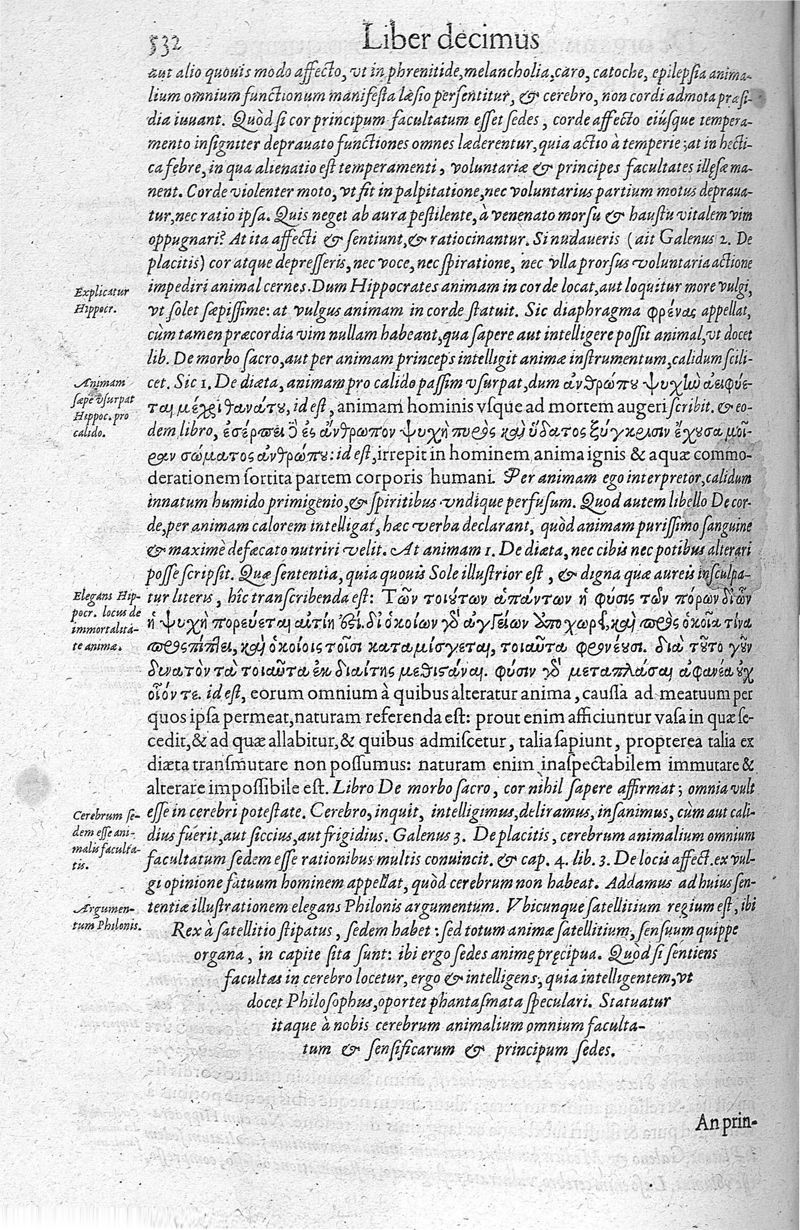 532
Liber decimus
aut alio quouis modo affecto, vt in phrenitide, melancholia, caro, catoche, epilepsia anima-
lium omnium functionum manifesta læsio persentitur, & cerebro, non cordi admota præsi-
dia iuuant. Quòd si cor principum facultatum esset sedes, corde affecto eiúsque tempera-
mento insigniter deprauato functiones omnes læderentur, quia actio à temperie; at in hecti-
ca febre, in qua alienatio est temperamenti, voluntariæ & principes facultates illæsæ ma-
nent. Corde violenter moto, vt fit in palpitatione, nec voluntarius partium motus depraua-
tur, nec ratio ipsa. Quis neget ab aura pestilente, à venenato morsu & haustu vitalem vim
oppugnari? At ita affecti & sentiunt, & ratiocinantur. Si nudaueris (ait Galenus 2. De
placitis) cor atque depresseris, nec voce, nec spiratione, nec vlla prorsus voluntaria actione
impediri animal cernes. Dum Hippocrates animam in corde locat, aut loquitur more vulgi,
Explicatur
Hippocr.
vt solet sæpissime: at vulgus animam in corde statuit. Sic diaphragma φρένας appellat,
cùm tamen præcordia vim nullam habeant, qua sapere aut intelligere possit animal, vt docet
lib. De morbo sacro, aut per animam princeps intelligit animæ instrumentum, calidum scili-
cet. Sic 1. De diæta, animam pro calido passim vsurpat, dum ἀνθρώπου ψυχὴ ἀεὶ φύε-
Animam
sæpe vsurpat
Hippoc. pro
calido.
ται μέχρι θανάτου, id est, animam hominis vsque ad mortem augeri scribit. & eo-
dem libro, ἐσέρπει δὲ ἐς ἄνθρωπον ψυχὴ πυρὸς καὶ ὕδατος ξύγκρισιν ἔχουσα μοῖ-
ραν σώματος ἀνθρώπου: id est, irrepit in hominem anima ignis & aquæ commo-
derationem sortita partem corporis humani. Per animam ego interpretor, calidum
innatum humido primigenio, & spiritibus vndique perfusum. Quod autem libello De cor-
de, per animam calorem intelligat, hæc verba declarant, quòd animam purissimo sanguine
& maximè defæcato nutriri velit. At animam 1. De diæta, nec cibis nec potibus alterari
posse scripsit. Quæ sententia, quia quouis Sole illustrior est, & digna quæ aureis insculpa-
Elegans Hip-
pocr. locus de
immortalita-
te animæ.
tur literis, hîc transcribenda est: Τῶν τοιούτων ἁπάντων ἡ φύσις τῶν πόρων δι' ὧν
ἡ ψυχὴ πορεύεται αἰτίη ἐστί. δι' ὁκοίων γὰρ ἀγγείων ὑποχωρεῖ, καὶ πρὸς ὁκοῖά τινα
προσπίπτει, καὶ ὁκοίοις τοῖσι καταμίσγεται, τοιαῦτα φρονέουσι. διὰ τοῦτο γοῦν
δυνατὸν τὰ τοιαῦτα ἐκ διαίτης μεθιστάναι. φύσιν γὰρ μεταπλάσαι ἀφανέα οὐχ
οἷόν τε. id est, eorum omnium à quibus alteratur anima, caussa ad meatuum per
quos ipsa permeat, naturam referenda est: prout enim afficiuntur vasa in quæ se-
cedit, & ad quæ allabitur, & quibus admiscetur, talia sapiunt, propterea talia ex
diæta transmutare non possumus: naturam enim inaspectabilem immutare &
alterare impossibile est. Libro De morbo sacro, cor nihil sapere affirmat; omnia vult
Cerebrum se-
dem esse ani-
malis faculta-
tis.
esse in cerebri potestate. Cerebro, inquit, intelligimus, deliramus, insanimus, cùm aut cali-
dius fuerit, aut siccius, aut frigidius. Galenus 3. De placitis, cerebrum animalium omnium
facultatum sedem esse rationibus multis conuincit. & cap. 4. lib. 3. De locis affect. ex vul-
gi opinione fatuum hominem appellat, quòd cerebrum non habeat. Addamus ad huius sen-
Argumen-
tum Philonis.
tentiæ illustrationem elegans Philonis argumentum. Vbicunque satellitium regium est, ibi
Rex à satellitio stipatus, sedem habet: sed totum animæ satellitium, sensuum quippe
organa, in capite sita sunt: ibi ergo sedes animę pręcipua. Quòd si sentiens
facultas in cerebro locetur, ergo & intelligens, quia intelligentem, vt
docet Philosophus, oportet phantasmata speculari. Statuatur
itaque à nobis cerebrum animalium omnium faculta-
tum & sensificarum & principum sedes.
An prin-